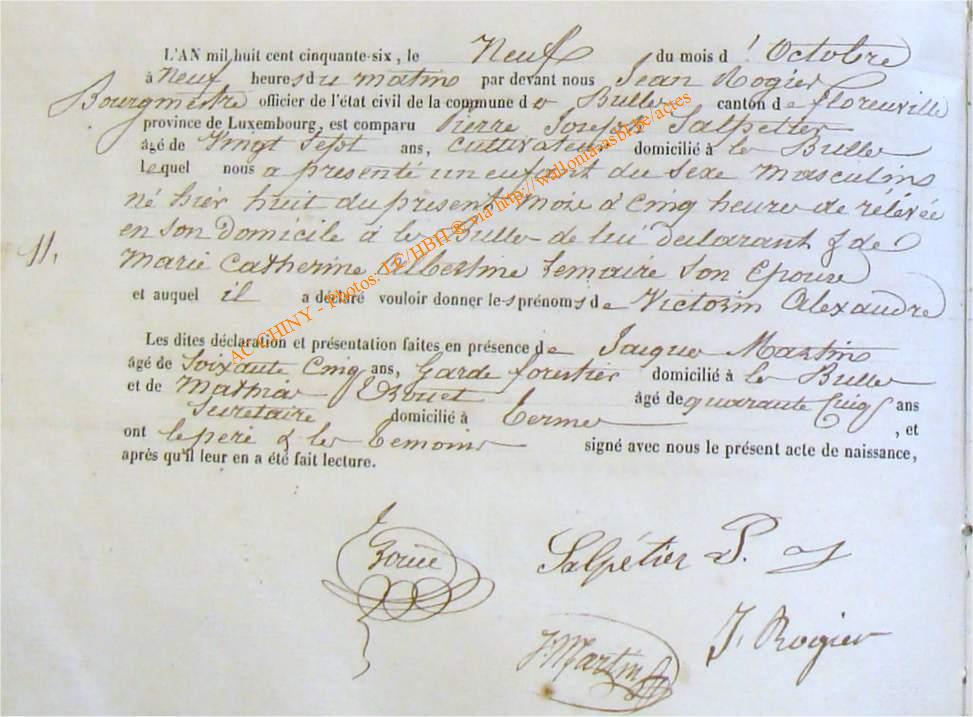 L'AN mil huit cent cinquante-six, le Neuf du mois d' Octobre
à Neuf heures du matin par devant nous Jean Rogier
Bourgmestre officier de l'état civil de la commune de Bulle canton de floreuville
province de Luxembourg, est comparu Pierre Joseph Salpetier
âgé de Vingt Sept ans, Cultivateur domicilié à les Bulles
Lequel nous a presenté un enfant du Sexe Masculin
né hier huit du present mois à Cinq heure de rélévée
en Son Domicile à les Bulle de lui declarant & de
Marie Catherine Albertine Lemaire Son Epouse
et auquel il a déclaré vouloir donner les prénoms de Victorin Alexandre
Les dites déclaration et présentation faites en présence de Jacque Martin
âgé de Soixante Cinq ans, Garde forestier domicilié à les Bulle
et de Mathias âgé de quarante Cinq ans
Secretaire domicilié à Termes, et
ont le pere & les temoins signé avec nous le présent acte de naissance,
après qu'il leur en a été fait lecture.
11.
Salpétier P. J
J. Martin
J. Rogier
AC CHINY - Photos: LE/HBH ® via http://wallonia-asbl.be/actes